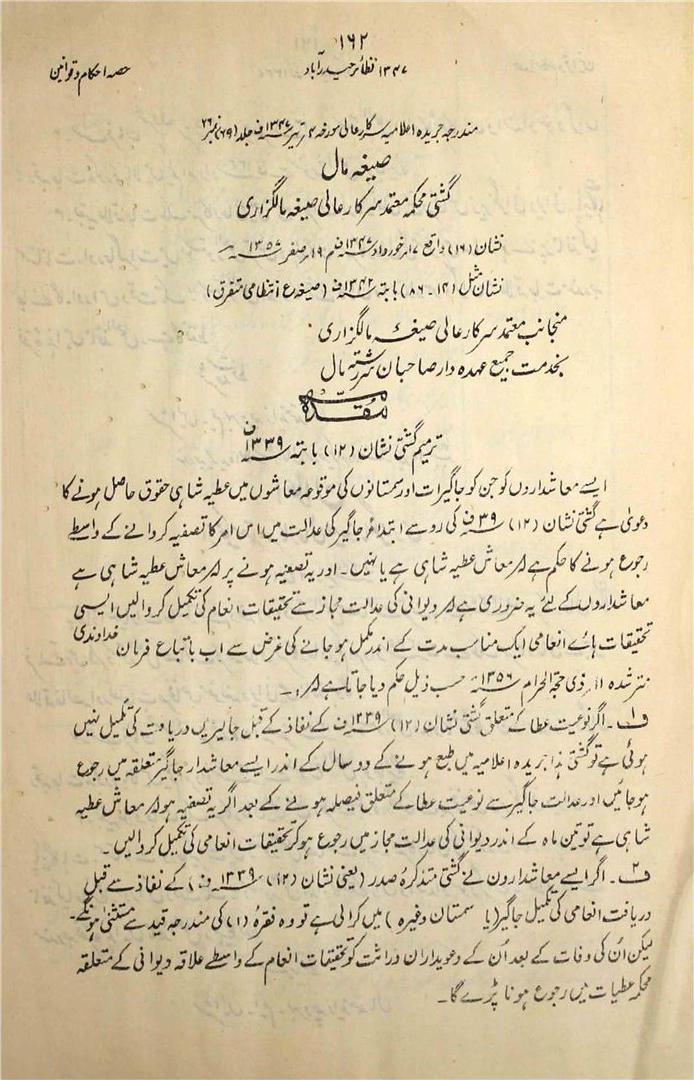 ۱۶۲
حصہ احکام و قوانین
۱۳۴۷ نظائر حیدرآباد
مندرجہ جریدہ اعلامیہ سرکارعالی مورخہ ۴؍ تیر ۱۳۴۷ف جلد (۶۹) نمبر ۲۶
صیغہ مال
گشتی محکمہ معتمد سرکارعالی صیغہ مالگزاری
نشان (۱۶) واقع ۱۷؍ خورداد ۱۳۴۷ف م ۱۹؍ صفر ۱۳۵۷ھ
نشان مثل (۱۴-۸۶) بابتہ ۱۳۴۲ف (صیغہ ع انتظامی متفرق)
منجانب معتمد سرکارعالی صیغہ مالگزاری
بخدمت جمیع عہدہ دار صاحبان سررشتہ مال
مقدمہ
ترمیم گشتی نشان (۱۲) بابتہ ۱۳۳۹ف
ایسے معاشداروں کو جن کو جاگیرات اور سمستانوں کی موقوعہ معاشوں میں عطیہ شاہی حقوق حاصل ہونے کا
دعویٰ ہے گشتی نشان (۱۲) ۳۹ف کی رو سے ابتداءً جاگیر کی عدالت میں اس امر کا تصفیہ کروانے کے واسطے
رجوع ہونے کا حکم ہے کہ معاش عطیہ شاہی ہے یا نہیں۔ اور یہ تصفیہ ہونے پر کہ معاش عطیہ شاہی ہے
معاشداروں کے لئے یہ ضروری ہے کہ دیوانی کی عدالت مجاز سے تحقیقات انعام کی تکمیل کروالیں ایسی
تحقیقات ہائے انعامی ایک مناسب مدت کے اندر مکمل ہو جانے کی غرض سے اب باتباع فرمان خداوندی
شدہ ۱۱؍ ذی حجۃ الحرام ۱۳۵۶ھ حسب ذیل حکم دیا جاتا ہے کہ:۔
ف۱۔ اگر نوعیت عطا کے متعلق گشتی نشان (۱۲) ۱۳۳۹ف کے نفاذ کے قبل جاگیر میں دریافت کی تکمیل نہیں
ہوئی ہے تو گشتی ہذا جریدہ اعلامیہ میں طبع ہونے کے دو سال کے اندر ایسے معاشدار جاگیر متعلقہ میں رجوع
ہوجائیں اور عدالت جاگیر سے نوعیت عطا کے متعلق فیصلہ ہونے کے بعد اگر یہ تصفیہ ہو کہ معاش عطیہ
شاہی ہے تو تین ماہ کے اندر دیوانی کی عدالت مجاز میں رجوع ہوکر تحقیقات انعامی کی تکمیل کروالیں۔
ف۲۔ اگر ایسے معاشدارون نے گشتی متذکرہ صدر (یعنی نشان (۱۲) ۱۳۳۹ف) کے نفاذ سے قبل
دریافت انعامی کی تکمیل جاگیر (یا سمستان وغیرہ) میں کرالی ہے تو وہ فقرہ (۱) کی مندرجہ قید سے مستثنیٰ ہونگے۔
لیکن اُن کی وفات کے بعد اُن کے دعویداران وراثت کو تحقیقات انعام کے واسطے علاقہ دیوانی کے متعلقہ
محکمہ عطیات میں رجوع ہونا پڑے گا۔